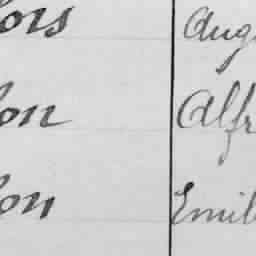 ors Aug
lon Alfr
lon Emil